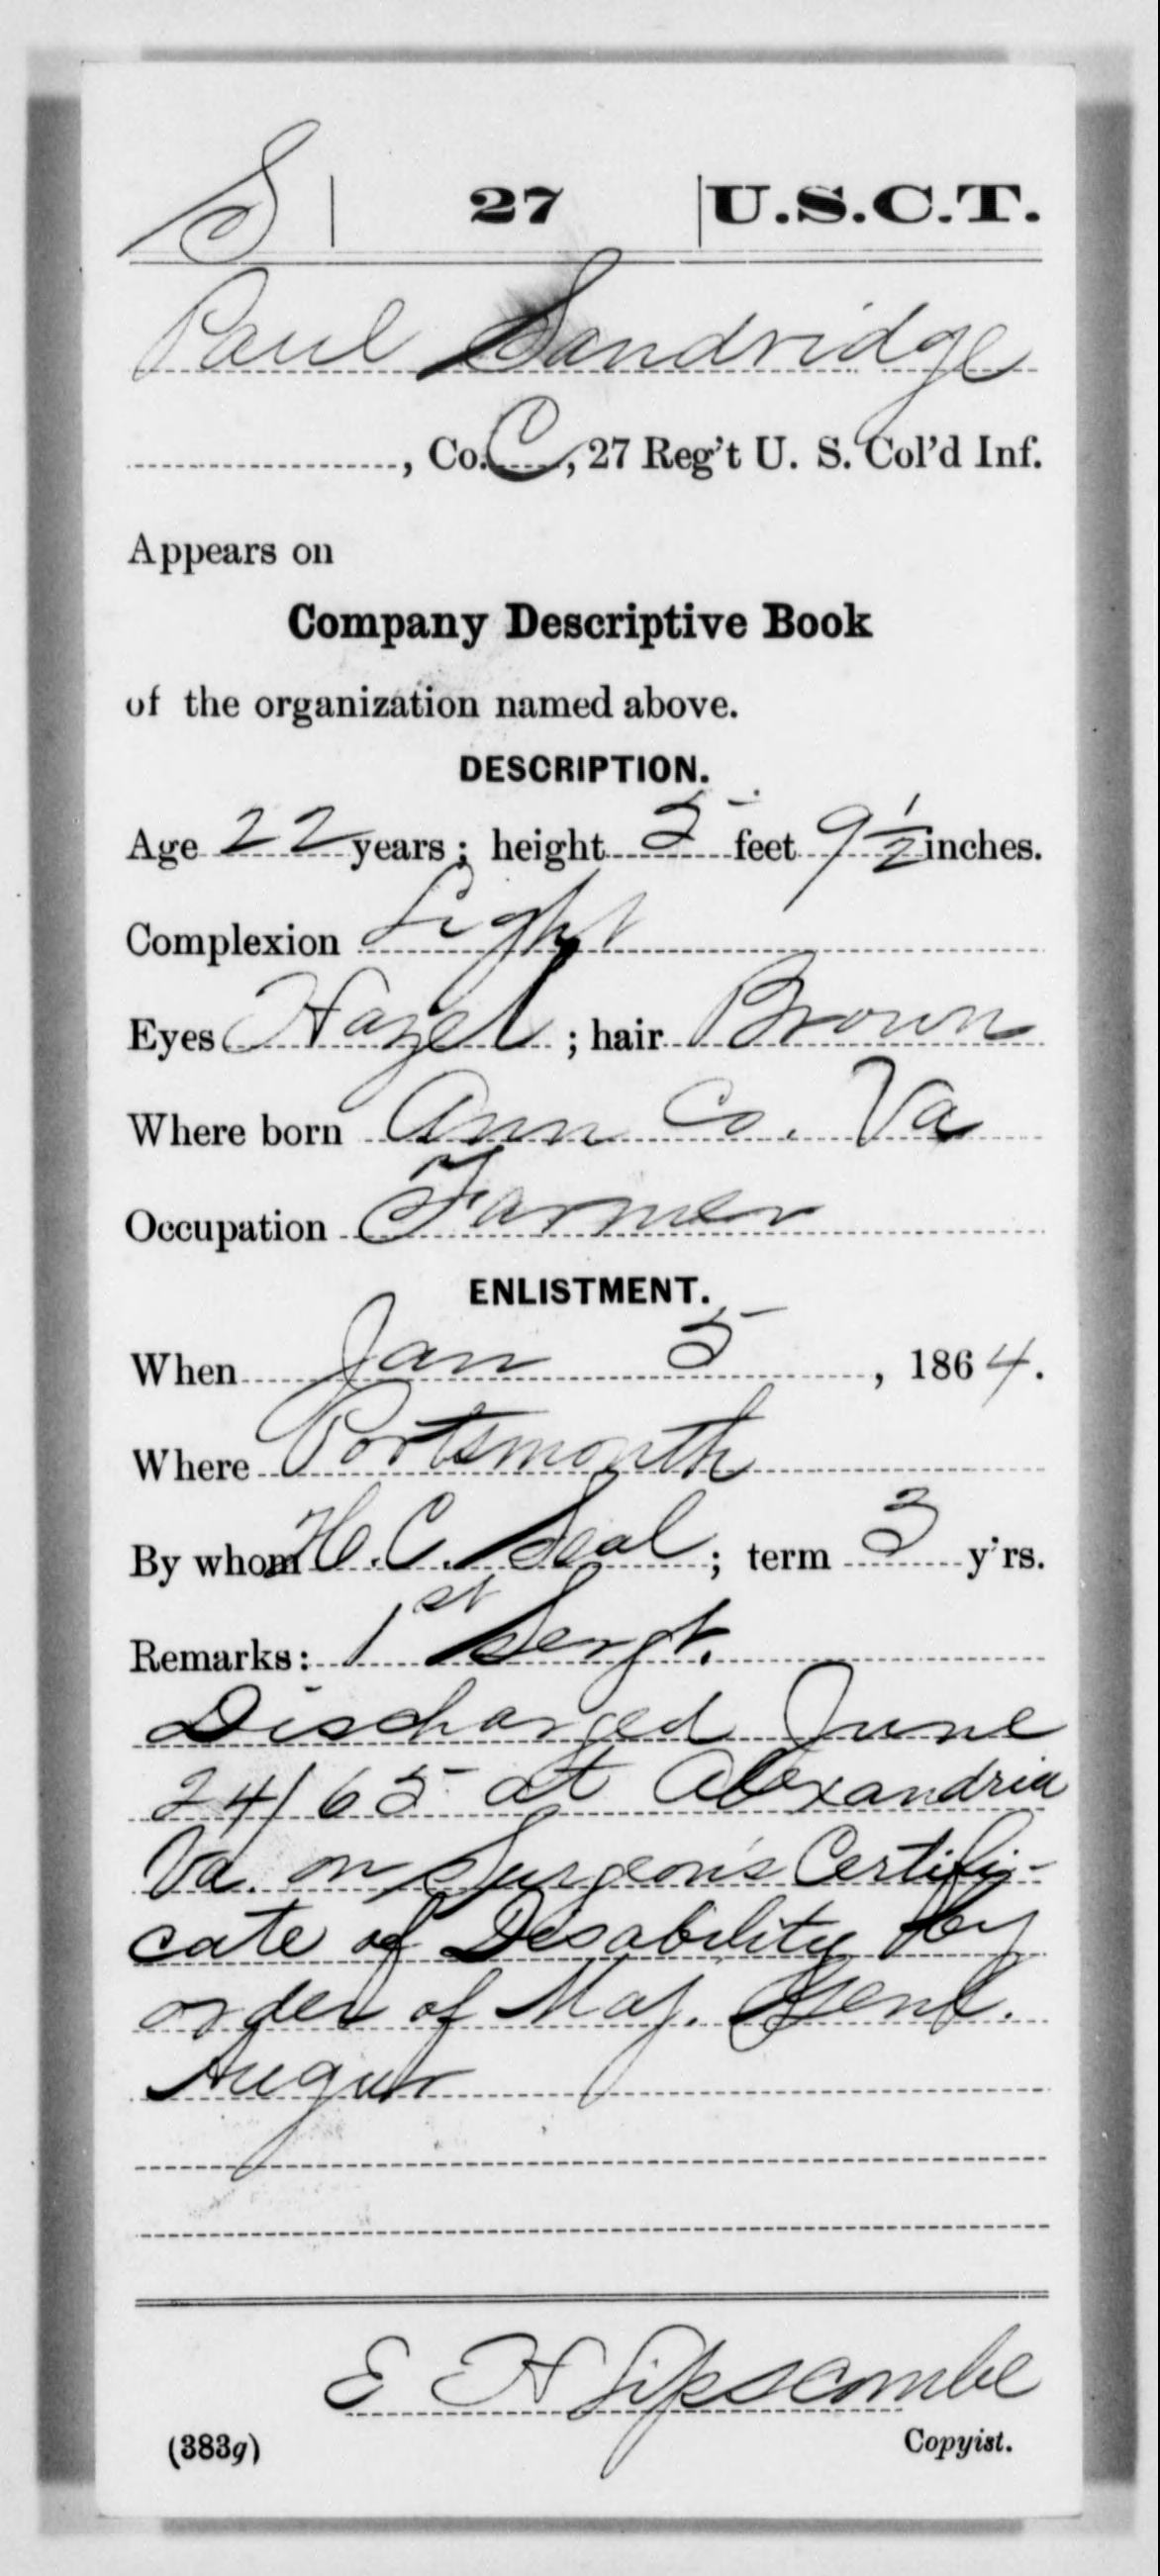 S | 27 | U.S.C.T.
Paul Sandridge
, Co. C, 27 Reg't U. S. Col'd Inf.
Appears on
Company Descriptive Book
of the organization named above.
DESCRIPTION.
Age 22 years; height 5 feet 9 1/2 inches.
Complexion Light
Eyes Hazel; hair Brown
Where born Ann Co. Va
Occupation Farmer
ENLISTMENT.
When Jan 5, 1864.
Where Portsmouth
By whom H.C. Seal; term 3 y'rs.
Remarks: 1st Sergt.
Discharged June
24/65 at Alexandria
Va. on Surgeon's Certifi-
cate of Disability by
order of Maj. Genl.
Augur
E H Lipscombe
(383g) Copyist.